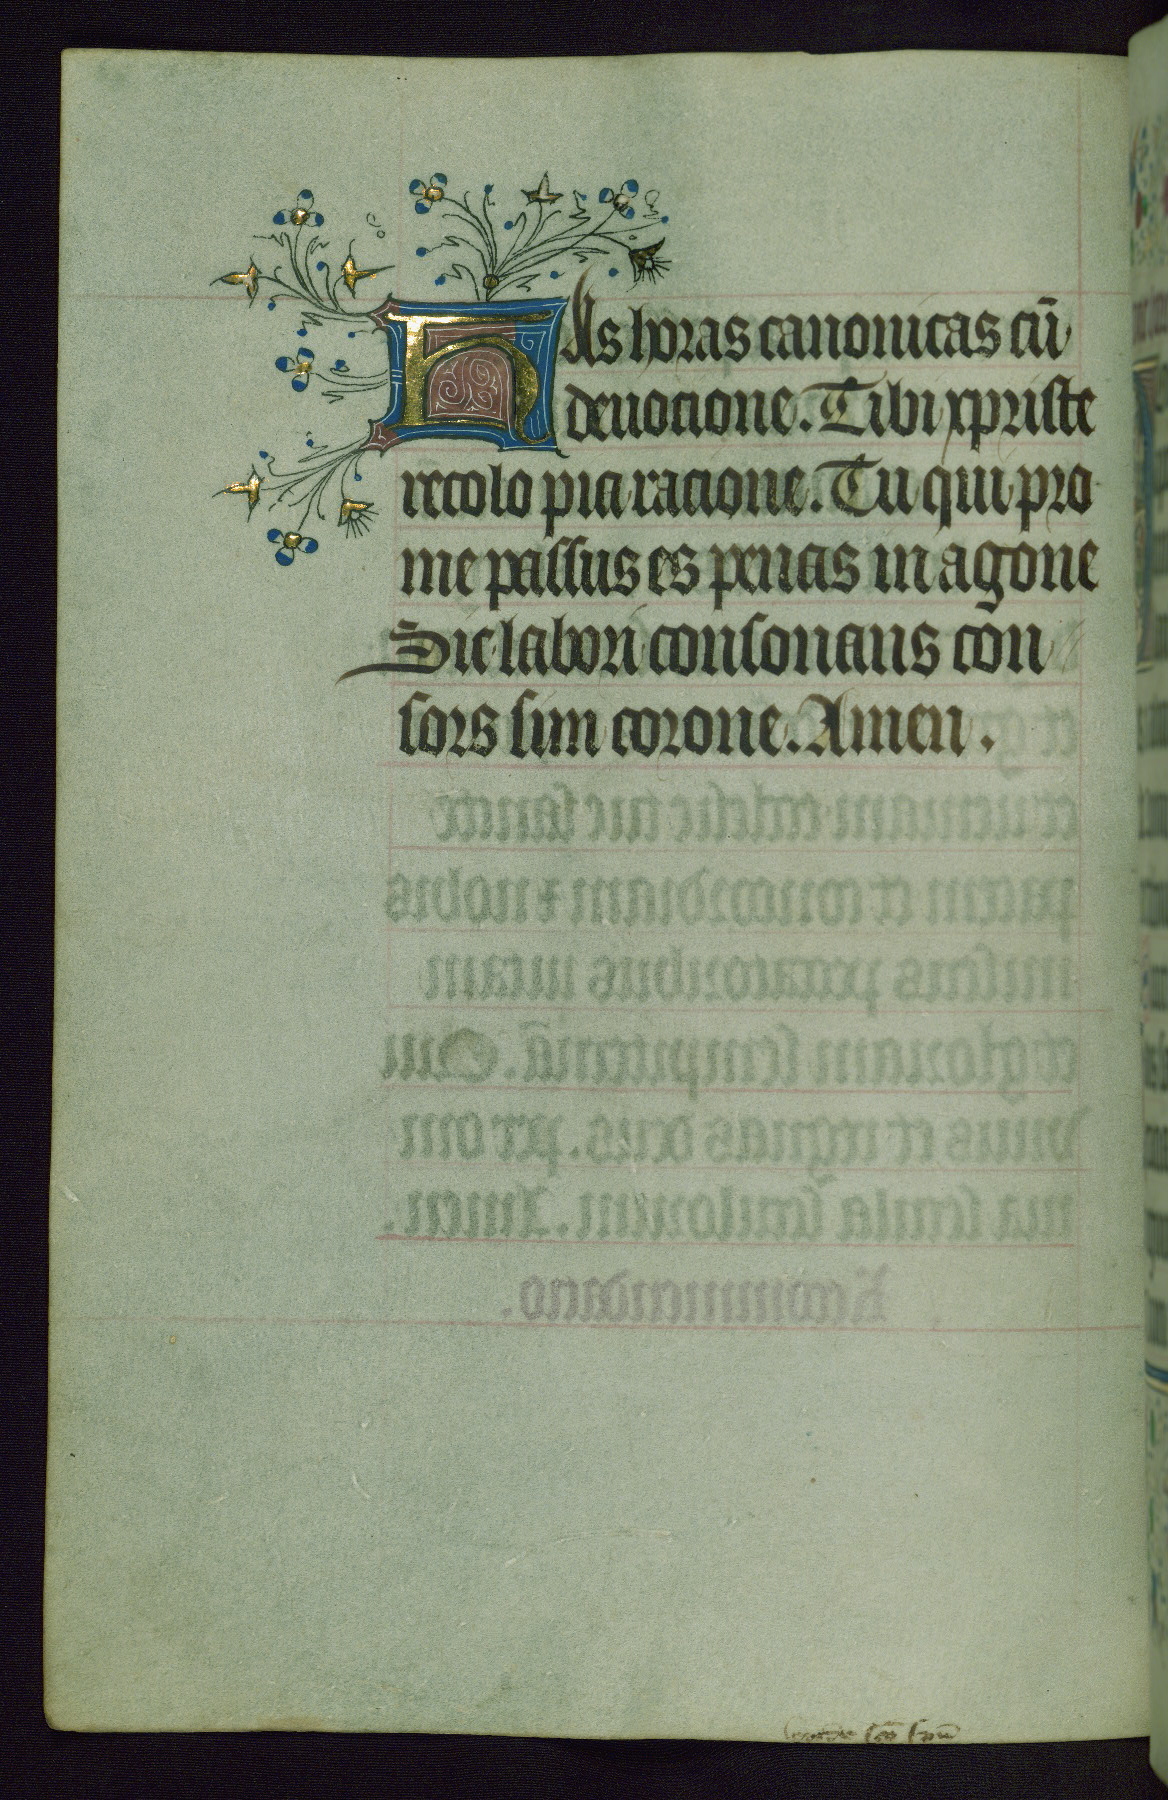 HAs horas canonicas cū
deuocione. Tibi xpriste
recolo pia racione. Tu qui pro
me passus es penas in agone
Sic labori consonans con
sors sim corone. Amen.